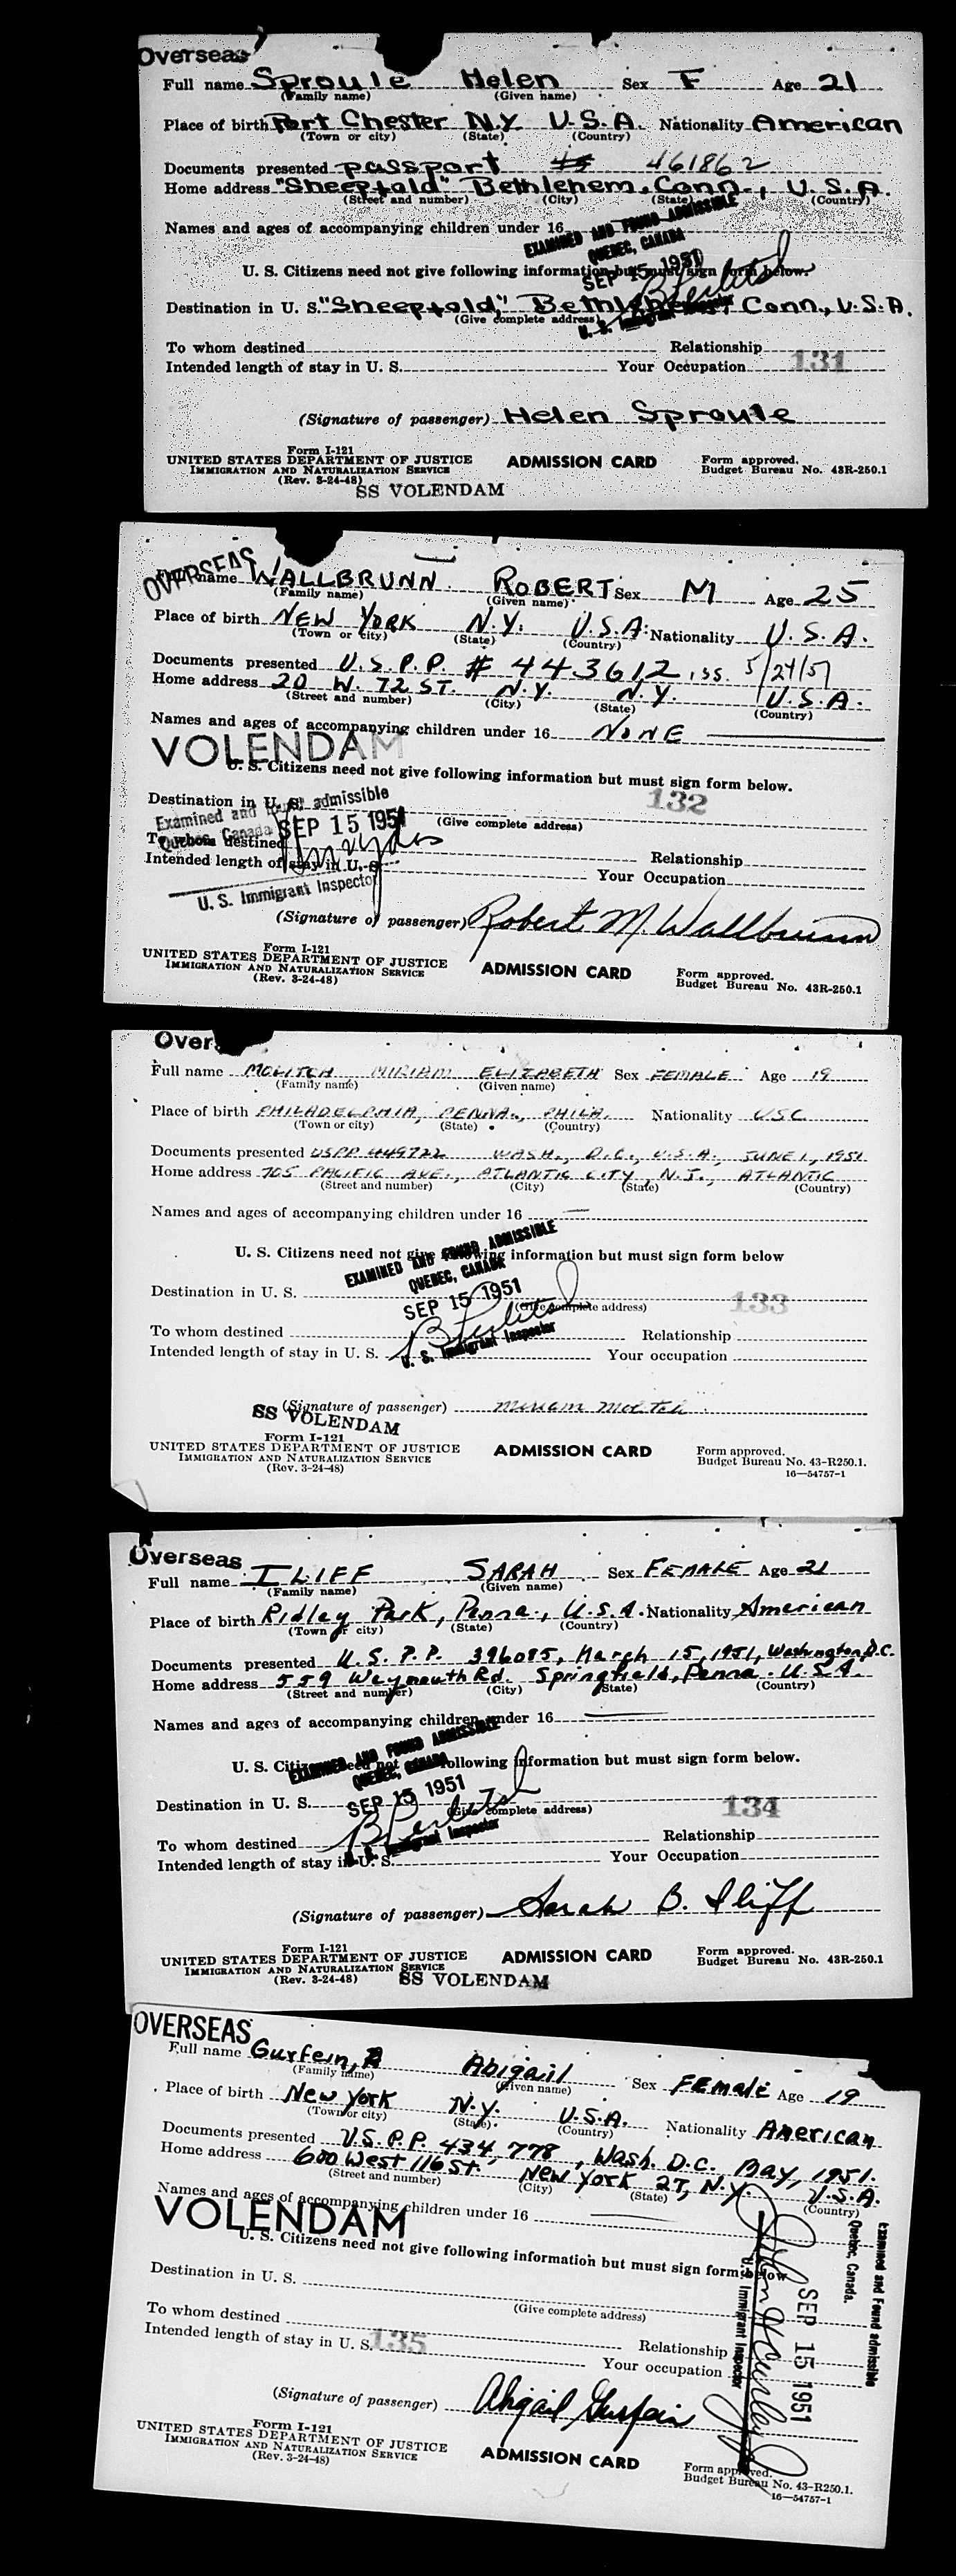 Overseas
Full name Sproule Helen Sex F Age 21
(Family name) (Given name)
Place of birth Port Chester N.Y. U.S.A. Nationality American
(Town or city) (State) (Country)
Documents presented passport 461862
Home address "Sheepfold" Bethlehem, Conn., U.S.A.
(Street and number) (City) (State) (Country)
Names and ages of accompanying children under 16
EXAMINED AND FOUND ADMISSIBLE
QUEBEC, CANADA
SEP 15 1951
U. S. Citizens need not give following information but must sign form below.
Destination in U. S. "Sheepfold," Bethlehem, Conn., U.S.A.
(Give complete address)
U. S. Immigrant Inspector
To whom destined Relationship
131
Intended length of stay in U. S. Your Occupation
(Signature of passenger) Helen Sproule
Form I-121
UNITED STATES DEPARTMENT OF JUSTICE ADMISSION CARD Form approved.
IMMIGRATION AND NATURALIZATION SERVICE Budget Bureau No. 43R-250.1
(Rev. 3-24-48)
SS VOLENDAM
OVERSEAS
name WALLBRUNN ROBERT Sex M Age 25
(Family name) (Given name)
Place of birth NEW YORK N.Y. U.S.A. Nationality U.S.A.
(Town or city) (State) (Country)
Documents presented U.S.P.P. # 443612, iss. 5/24/51
Home address 20 W. 72 ST. N.Y. N.Y. U.S.A.
(Street and number) (City) (State) (Country)
Names and ages of accompanying children under 16 NONE
VOLENDAM
U. S. Citizens need not give following information but must sign form below.
132
Destination in U. S.
Examined and found admissible
Quebec, Canada SEP 15 1951
(Give complete address)
To whom destined Relationship
Intended length of stay in U. S. Your Occupation
U. S. Immigrant Inspector
(Signature of passenger) Robert M. Wallbrunn
Form I-121
UNITED STATES DEPARTMENT OF JUSTICE ADMISSION CARD Form approved.
IMMIGRATION AND NATURALIZATION SERVICE Budget Bureau No. 43R-250.1
(Rev. 3-24-48)
Over
Full name MOLITCH MIRIAM ELIZABETH Sex FEMALE Age 19
(Family name) (Given name)
Place of birth PHILADELPHIA, PENNA., PHILA. Nationality USC
(Town or city) (State) (Country)
Documents presented USPP 449722 WASH., D.C., U.S.A., JUNE 1, 1951
Home address 705 PACIFIC AVE., ATLANTIC CITY, N.J., ATLANTIC
(Street and number) (City) (State) (Country)
Names and ages of accompanying children under 16 —
U. S. Citizens need not give following information but must sign form below
EXAMINED AND FOUND ADMISSIBLE
QUEBEC, CANADA
SEP 15 1951
Destination in U. S.
(Give complete address)
133
To whom destined Relationship
Intended length of stay in U. S. Your occupation
U. S. Immigrant Inspector
(Signature of passenger) Miriam Molitch
SS VOLENDAM
Form I-121
UNITED STATES DEPARTMENT OF JUSTICE ADMISSION CARD Form approved.
IMMIGRATION AND NATURALIZATION SERVICE Budget Bureau No. 43-R250.1.
(Rev. 3-24-48) 16—54757-1
Overseas
Full name ILIFF SARAH Sex FEMALE Age 21
(Family name) (Given name)
Place of birth Ridley Park, Penna., U.S.A. Nationality American
(Town or city) (State) (Country)
Documents presented U.S. P.P. 396085, March 15, 1951, Washington, D.C.
Home address 559 Weymouth Rd. Springfield, Penna. U.S.A.
(Street and number) (City) (State) (Country)
Names and ages of accompanying children under 16 —
EXAMINED AND FOUND ADMISSIBLE
QUEBEC, CANADA
U. S. Citizens need not give following information but must sign form below.
SEP 15 1951
Destination in U. S.
(Give complete address)
134
To whom destined Relationship
U. S. Immigrant Inspector
Intended length of stay in U. S. Your Occupation
(Signature of passenger) Sarah B. Iliff
Form I-121
UNITED STATES DEPARTMENT OF JUSTICE ADMISSION CARD Form approved.
IMMIGRATION AND NATURALIZATION SERVICE Budget Bureau No. 43R-250.1
(Rev. 3-24-48) SS VOLENDAM
OVERSEAS
Full name Gurfein, Abigail Sex FEMale Age 19
(Family name) (Given name)
Place of birth New York N.Y. U.S.A. Nationality American
(Town or city) (State) (Country)
Documents presented U.S. P.P. 434,778, Wash. D.C. May, 1951.
Home address 600 West 116 St. New York 27, N.Y. U.S.A.
(Street and number) (City) (State) (Country)
Names and ages of accompanying children under 16 —
VOLENDAM
U. S. Citizens need not give following information but must sign form below
Examined and Found admissible
Quebec, Canada.
SEP 15 1951
U. S. Immigrant Inspector
Destination in U. S.
(Give complete address)
To whom destined Relationship
Intended length of stay in U. S. 135 Your occupation
(Signature of passenger) Abigail Gurfein
Form I-121
UNITED STATES DEPARTMENT OF JUSTICE ADMISSION CARD Form approved.
IMMIGRATION AND NATURALIZATION SERVICE Budget Bureau No. 43-R250.1.
(Rev. 3-24-48) 16—54757-1